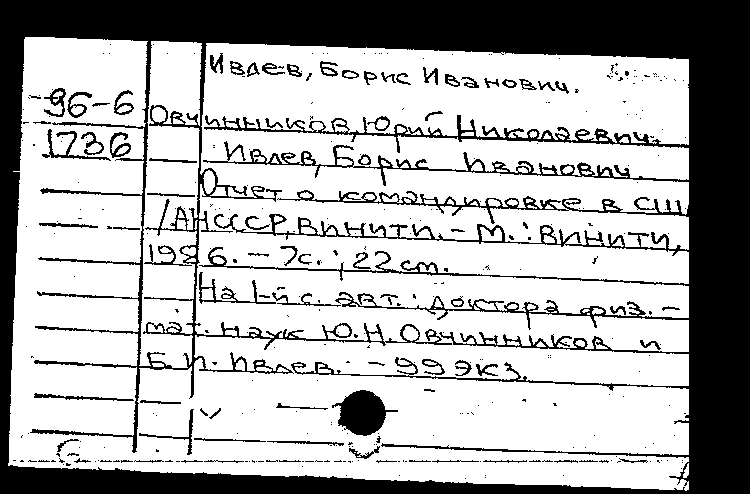 Ивлев, Борис Иванович.
96-6
Овчинников, Юрий Николаевич.
1736
Ивлев, Борис Иванович.
Отчет о командировке в СШ
/АНСССР, ВИНИТИ. - М. : ВИНИТИ,
1986. - 7с. ; 22 см.
На 1-й с. авт.: доктора физ. -
мат. наук Ю.Н. Овчинников и
Б.И. Ивлев. - 99 экз.